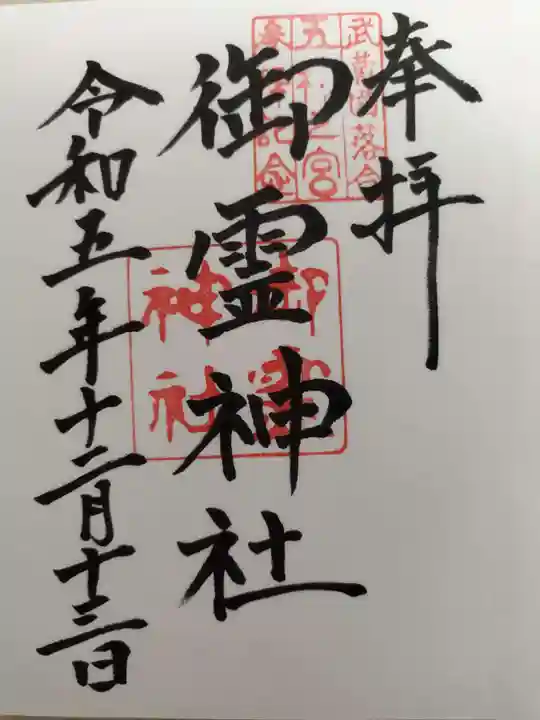 奉拝
武蔵国落合
五礼之宮
参拝記念
御霊神社
御霊
神社
令和五年十二月十三日